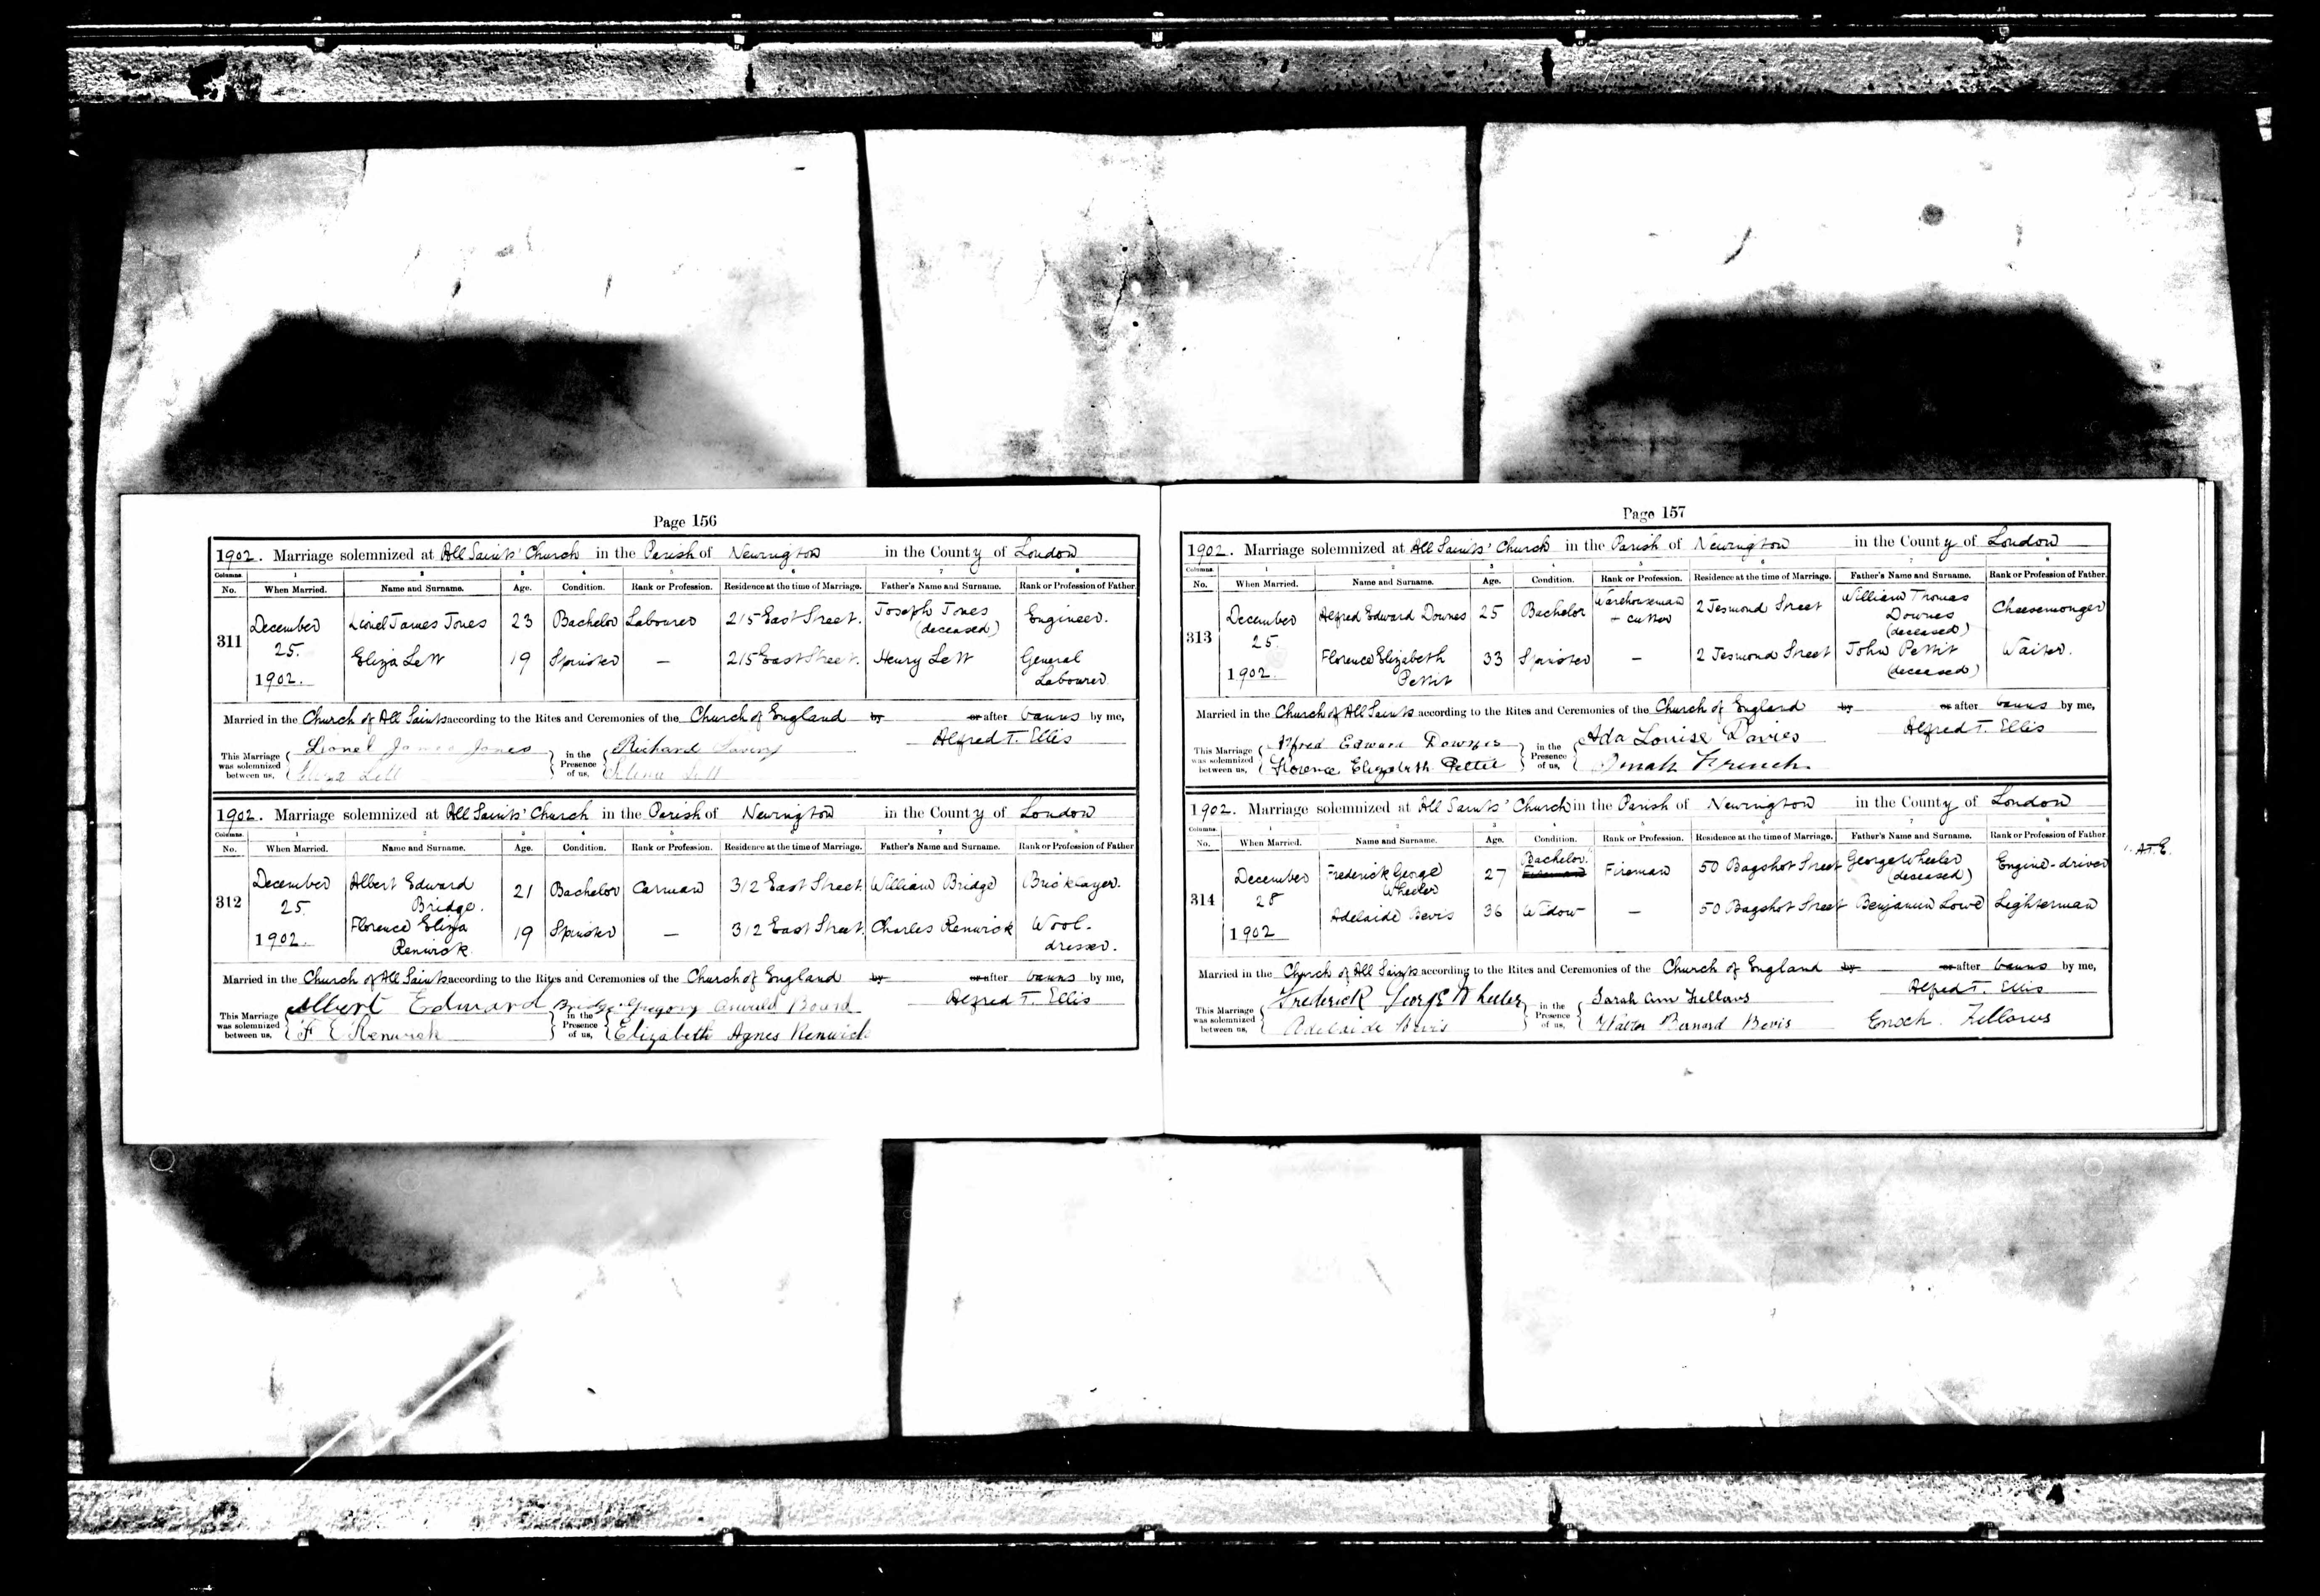 Page 156
1902. Marriage solemnized at All Saints' Church in the Parish of Newington in the County of London
Columns. 1 2 3 4 5 6 7 8
No. When Married. Name and Surname. Age. Condition. Rank or Profession. Residence at the time of Marriage. Father's Name and Surname. Rank or Profession of Father.
311 December 25. 1902. Lionel James Jones 23 Bachelor Labourer 215 East Street. Joseph Jones (deceased) Engineer.
Eliza Lett 19 Spinster — 215 East Street. Henry Lett General Labourer
Married in the Church of All Saints according to the Rites and Ceremonies of the Church of England by or after banns by me,
Alfred T. Ellis
This Marriage was solemnized between us, Lionel James Jones in the Presence of us, Richard
Eliza Lett Lett
1902. Marriage solemnized at All Saints' Church in the Parish of Newington in the County of London
Columns. 1 2 3 4 5 6 7 8
No. When Married. Name and Surname. Age. Condition. Rank or Profession. Residence at the time of Marriage. Father's Name and Surname. Rank or Profession of Father
312 December 25. 1902. Albert Edward Bridge. 21 Bachelor Carman 312 East Street. William Bridge Bricklayer.
Florence Eliza Renwick 19 Spinster — 312 East Street. Charles Renwick Wool-dresser.
Married in the Church of All Saints according to the Rites and Ceremonies of the Church of England by or after banns by me,
Alfred T. Ellis
This Marriage was solemnized between us, Albert Edward Bridge in the Presence of us, Gregory Oswald Board
F E Renwick Elizabeth Agnes Renwick
Page 157
1902. Marriage solemnized at All Saints' Church in the Parish of Newington in the County of London
Columns. 1 2 3 4 5 6 7 8
No. When Married. Name and Surname. Age. Condition. Rank or Profession. Residence at the time of Marriage. Father's Name and Surname. Rank or Profession of Father.
313 December 25. 1902. Alfred Edward Downes 25 Bachelor Warehouseman + cutter 2 Jesmond Street William Thomas Downes (deceased) Cheesemonger
Florence Elizabeth Pettit 33 Spinster — 2 Jesmond Street John Pettit (deceased) Waiter.
Married in the Church of All Saints according to the Rites and Ceremonies of the Church of England by or after banns by me,
Alfred T. Ellis
This Marriage was solemnized between us, Alfred Edward Downes in the Presence of us, Ada Louise Davies
Florence Elizabeth Pettit French
1902. Marriage solemnized at All Saints' Church in the Parish of Newington in the County of London
Columns. 1 2 3 4 5 6 7 8
No. When Married. Name and Surname. Age. Condition. Rank or Profession. Residence at the time of Marriage. Father's Name and Surname. Rank or Profession of Father
314 December 28 1902 Frederick George Wheeler 27 Bachelor. Fireman Fireman 50 Bagshot Street George Wheeler (deceased) Engine-driver A.T.E.
Adelaide Bevis 36 Widow — 50 Bagshot Street Benjamin Lowe Lighterman
Married in the Church of All Saints according to the Rites and Ceremonies of the Church of England by or after banns by me,
Alfred T. Ellis
This Marriage was solemnized between us, Frederick George Wheeler in the Presence of us, Sarah Ann Fellows
Adelaide Bevis Walter Bernard Bevis Enoch Fellows